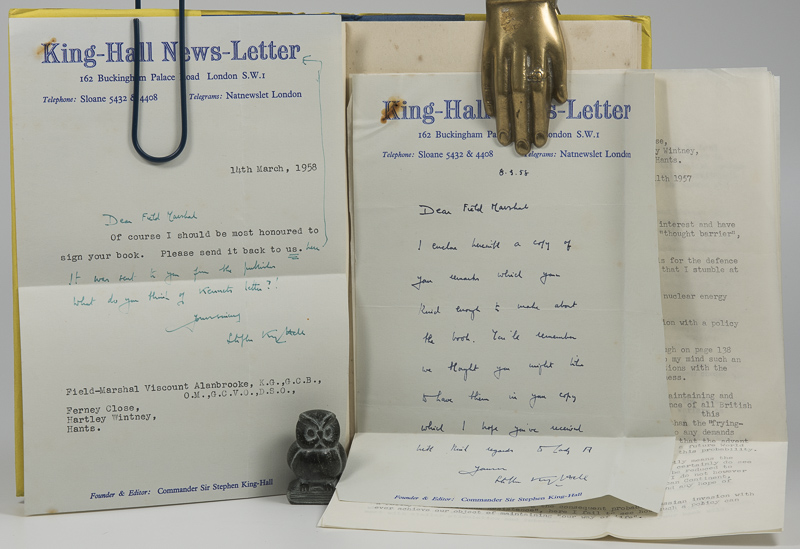 King-Hall News-Letter
162 Buckingham Palace Road London S.W.1
Telephone: Sloane 5432 & 4408 Telegrams: Natnewslet London
14th March, 1958
Dear Field Marshal
Of course I should be most honoured to
sign your book. Please send it back to us. here
It was sent to you from the publishers
What do you think of Kennan's letter?!
Yours sincerely
Stephen King-Hall
Field-Marshal Viscount Alanbrooke, K.G.,G.C.B.,
O.M.,G.C.V.O.,D.S.O.,
Ferney Close,
Hartley Wintney,
Hants.
Founder & Editor: Commander Sir Stephen King-Hall
King-Hall News-Letter
162 Buckingham Pa London S.W.1
Telephone: Sloane 5432 & 4408 Telegrams: Natnewslet London
8.3.58
Dear Field Marshal
I enclose herewith a copy of
your remarks which you
kind enough to make about
the book. You'll remember
we thought you might like
to have them in your copy
which I hope you've received
With kind regards to Lady A
Yours
Stephen King-Hall
Founder & Editor: Commander Sir Stephen King-Hall
Wintney,
Hants.
11th 1957
interest and have
"thought barrier",
s for the defence
that I stumble at
nuclear energy
ion with a policy
ugh on page 138
my mind such an
sions with the
ness.
aintaining and
nce of all British
this
hen the "frying-
o any demands
that the advent